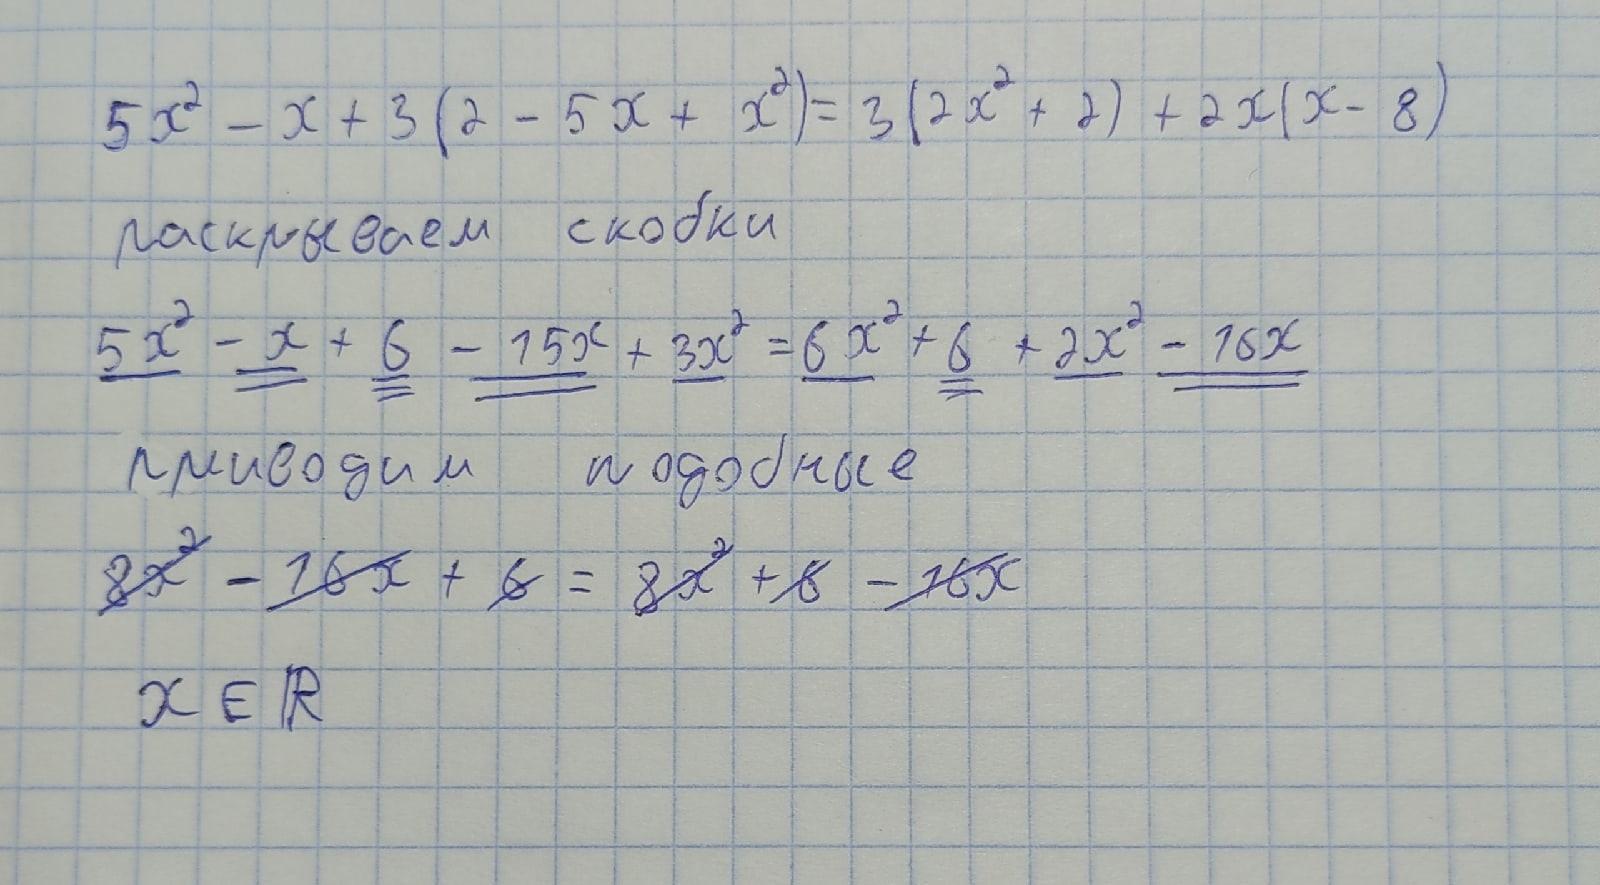 5x² - x + 3(2 - 5x + x²) = 3(2x² + 2) + 2x(x - 8)
раскрываем скобки
5x² - x + 6 - 15x + 3x² = 6x² + 6 + 2x² - 16x
приводим подобные
8x² - 16x + 6 = 8x² + 6 - 16x
x ∈ ℝ